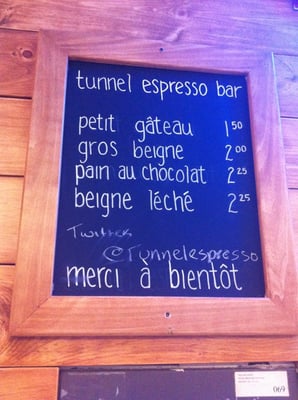 tunnel espresso bar
petit gâteau 1 50
gros beigne 2 00
pain au chocolat 2 25
beigne léché 2 25
Twitter
@Tunnelespresso
merci à bientôt
069